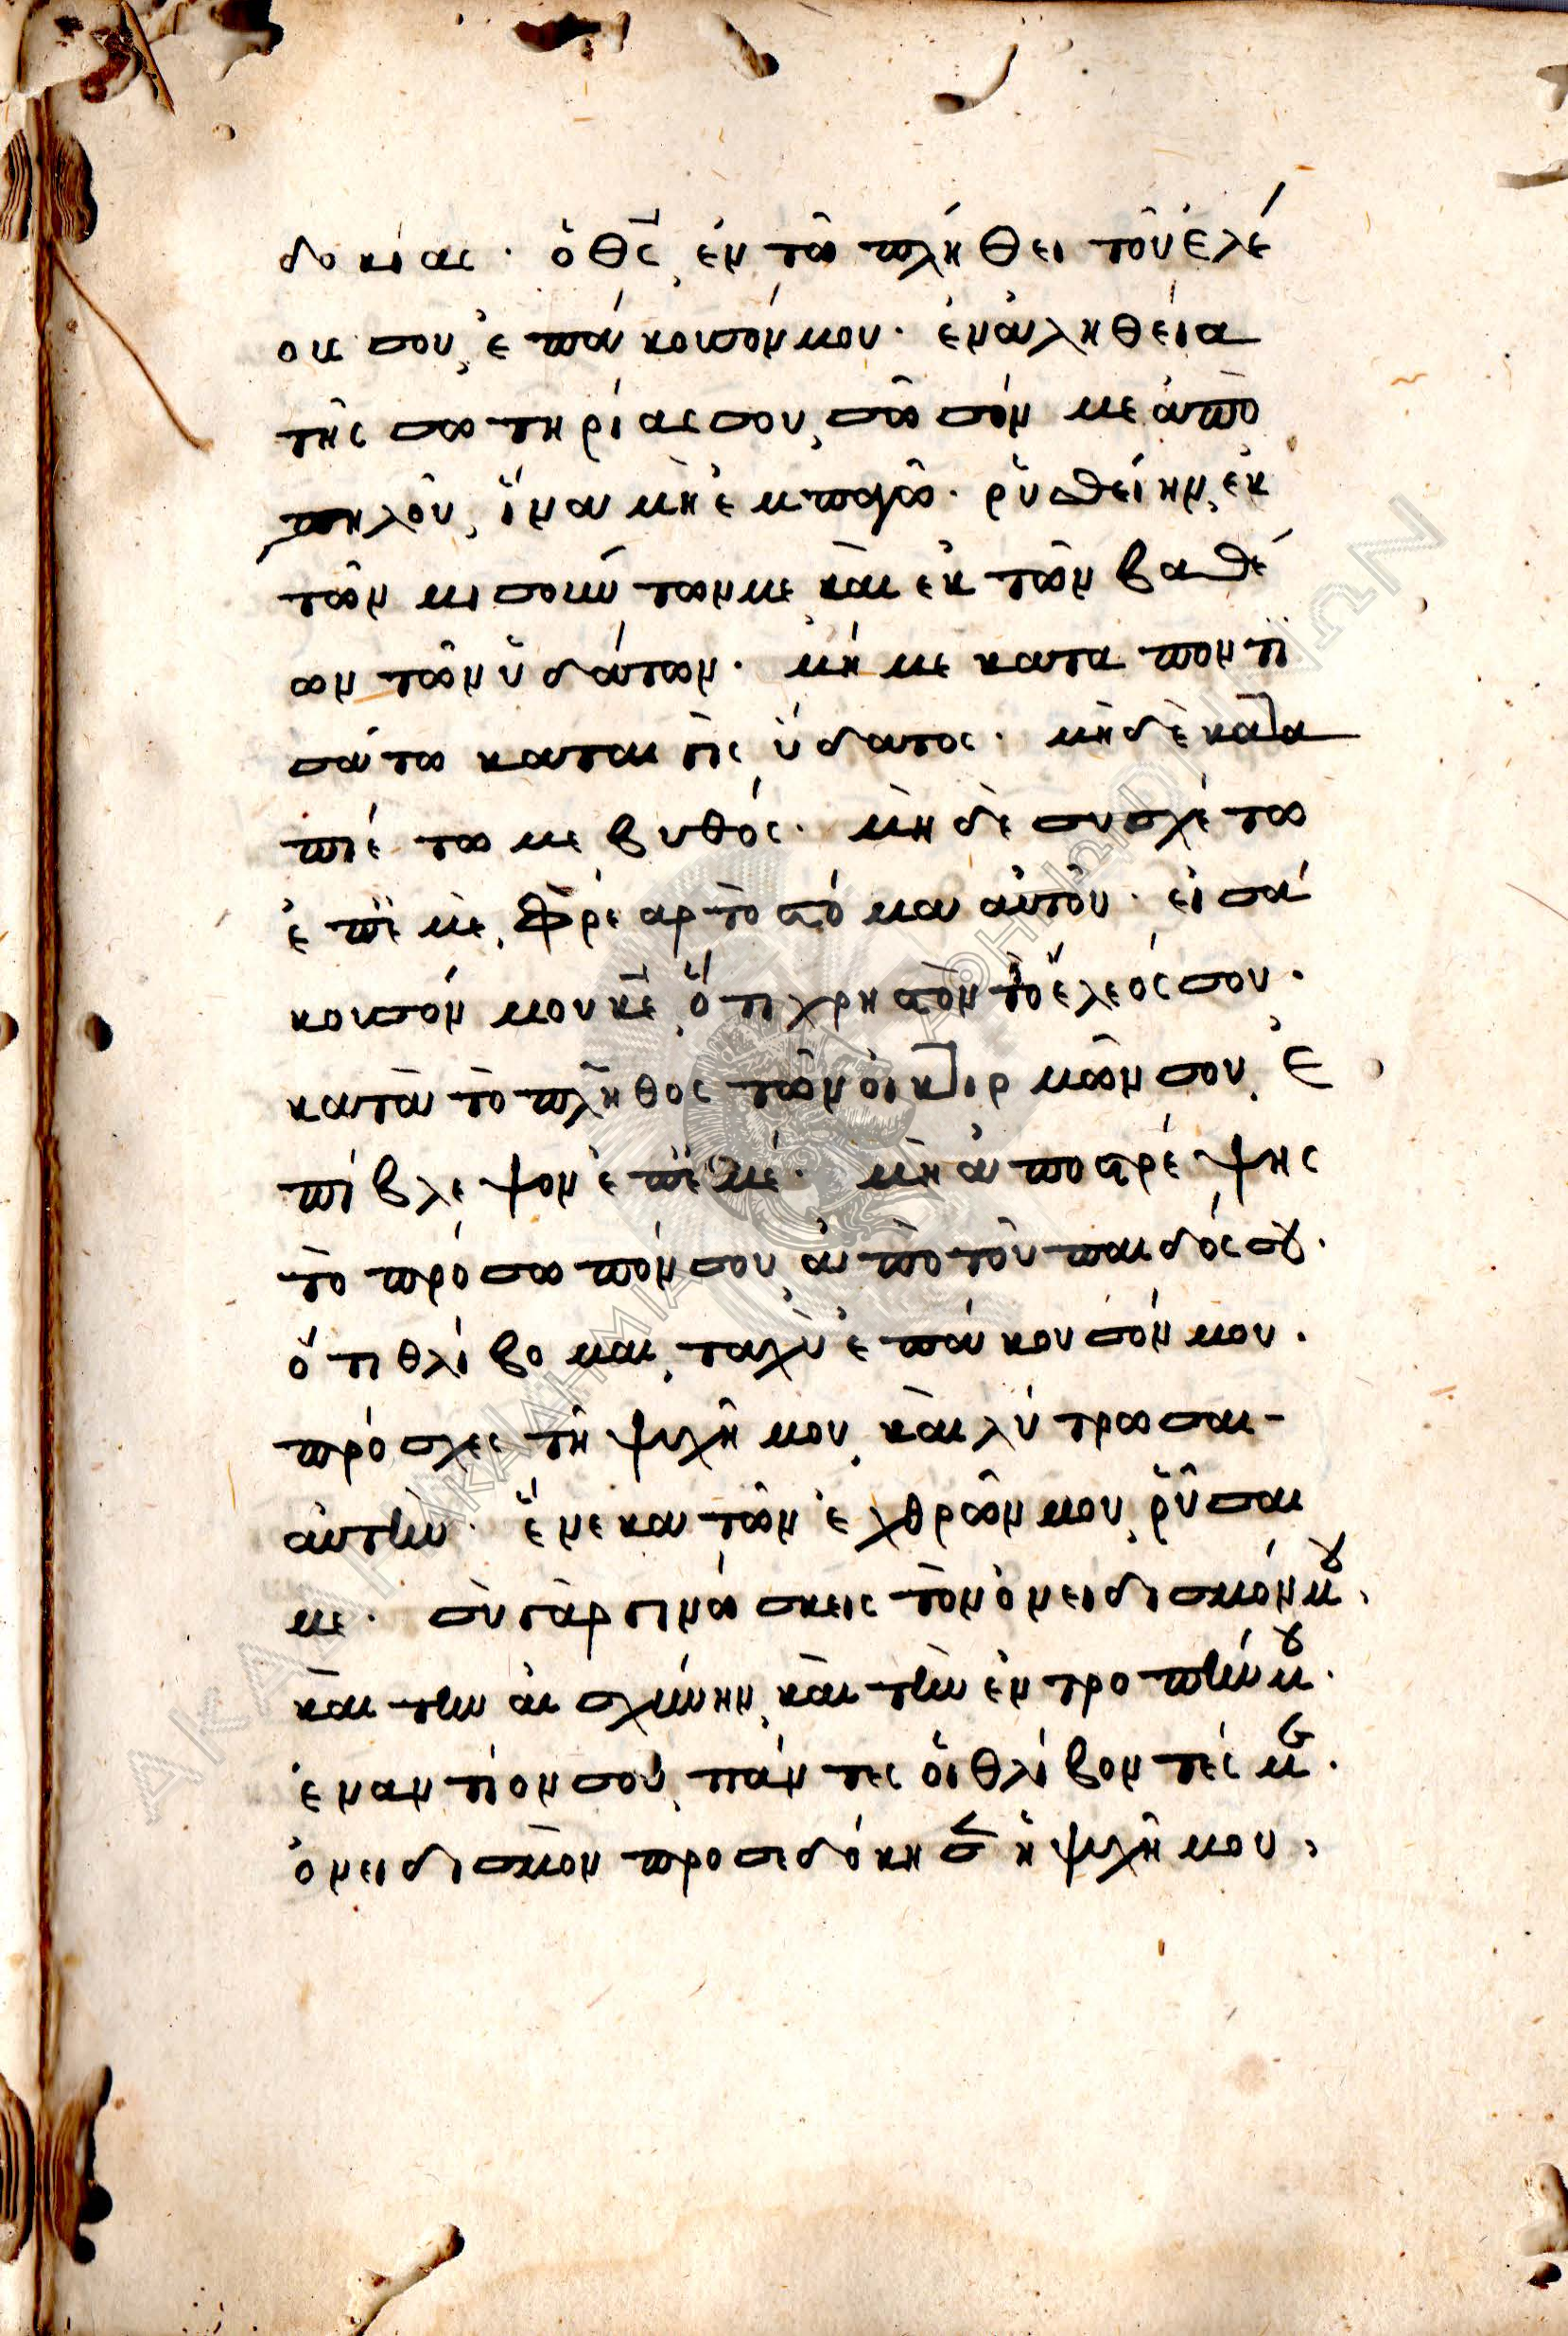 δοκίας · ὁ θς̅ ἐν τῶ πλήθει τοῦ ἐλέ
ους σου, ἐπάκουσόν μου · ἐν ἀληθεία
τῆς σωτηρίας σου, σῶσόν με ἀπὸ
πηλοῦ, ἵνα μὴ ἐμπαγῶ · ῥυσθείην, ἐκ
τῶν μισούντων με, καὶ ἐκ τῶν βαθέ
ων τῶν ὑδάτων · μή με καταποντι
σάτω καταιγὶς ὕδατος · μηδὲ κατα
πιέτω με βυθός · μηδὲ συσχέτω
ἐπ' ἐμὲ, φρέαρ τὸ στόμα αὐτοῦ · εἰσά
κουσόν μου κε̅, ὅτι χρηστὸν τὸ ἔλεός σου ·
κατὰ τὸ πλῆθος τῶν οἰκτιρμῶν σου, ἐ
πίβλεψον ἐπ' ἐμέ · μὴ ἀποστρέψης
τὸ πρόσωπόν σου, ἀπὸ τοῦ παιδός σου ·
ὅτι θλίβομαι, ταχὺ ἐπάκουσόν μου ·
πρόσχες τῆ ψυχῆ μου, καὶ λύτρωσαι-
αὐτὴν · ἕνεκα τῶν ἐχθρῶν μου, ῥῦσαι
με · σὺ γὰρ γινώσκεις τὸν ὀνειδισμόν μου,
καὶ τὴν αἰσχύνην, καὶ τὴν ἐντροπήν μου ·
ἐναντίον σου, πάντες οἱ θλίβοντές με ·
ὀνειδισμὸν προσεδόκησεν ἡ ψυχή μου,